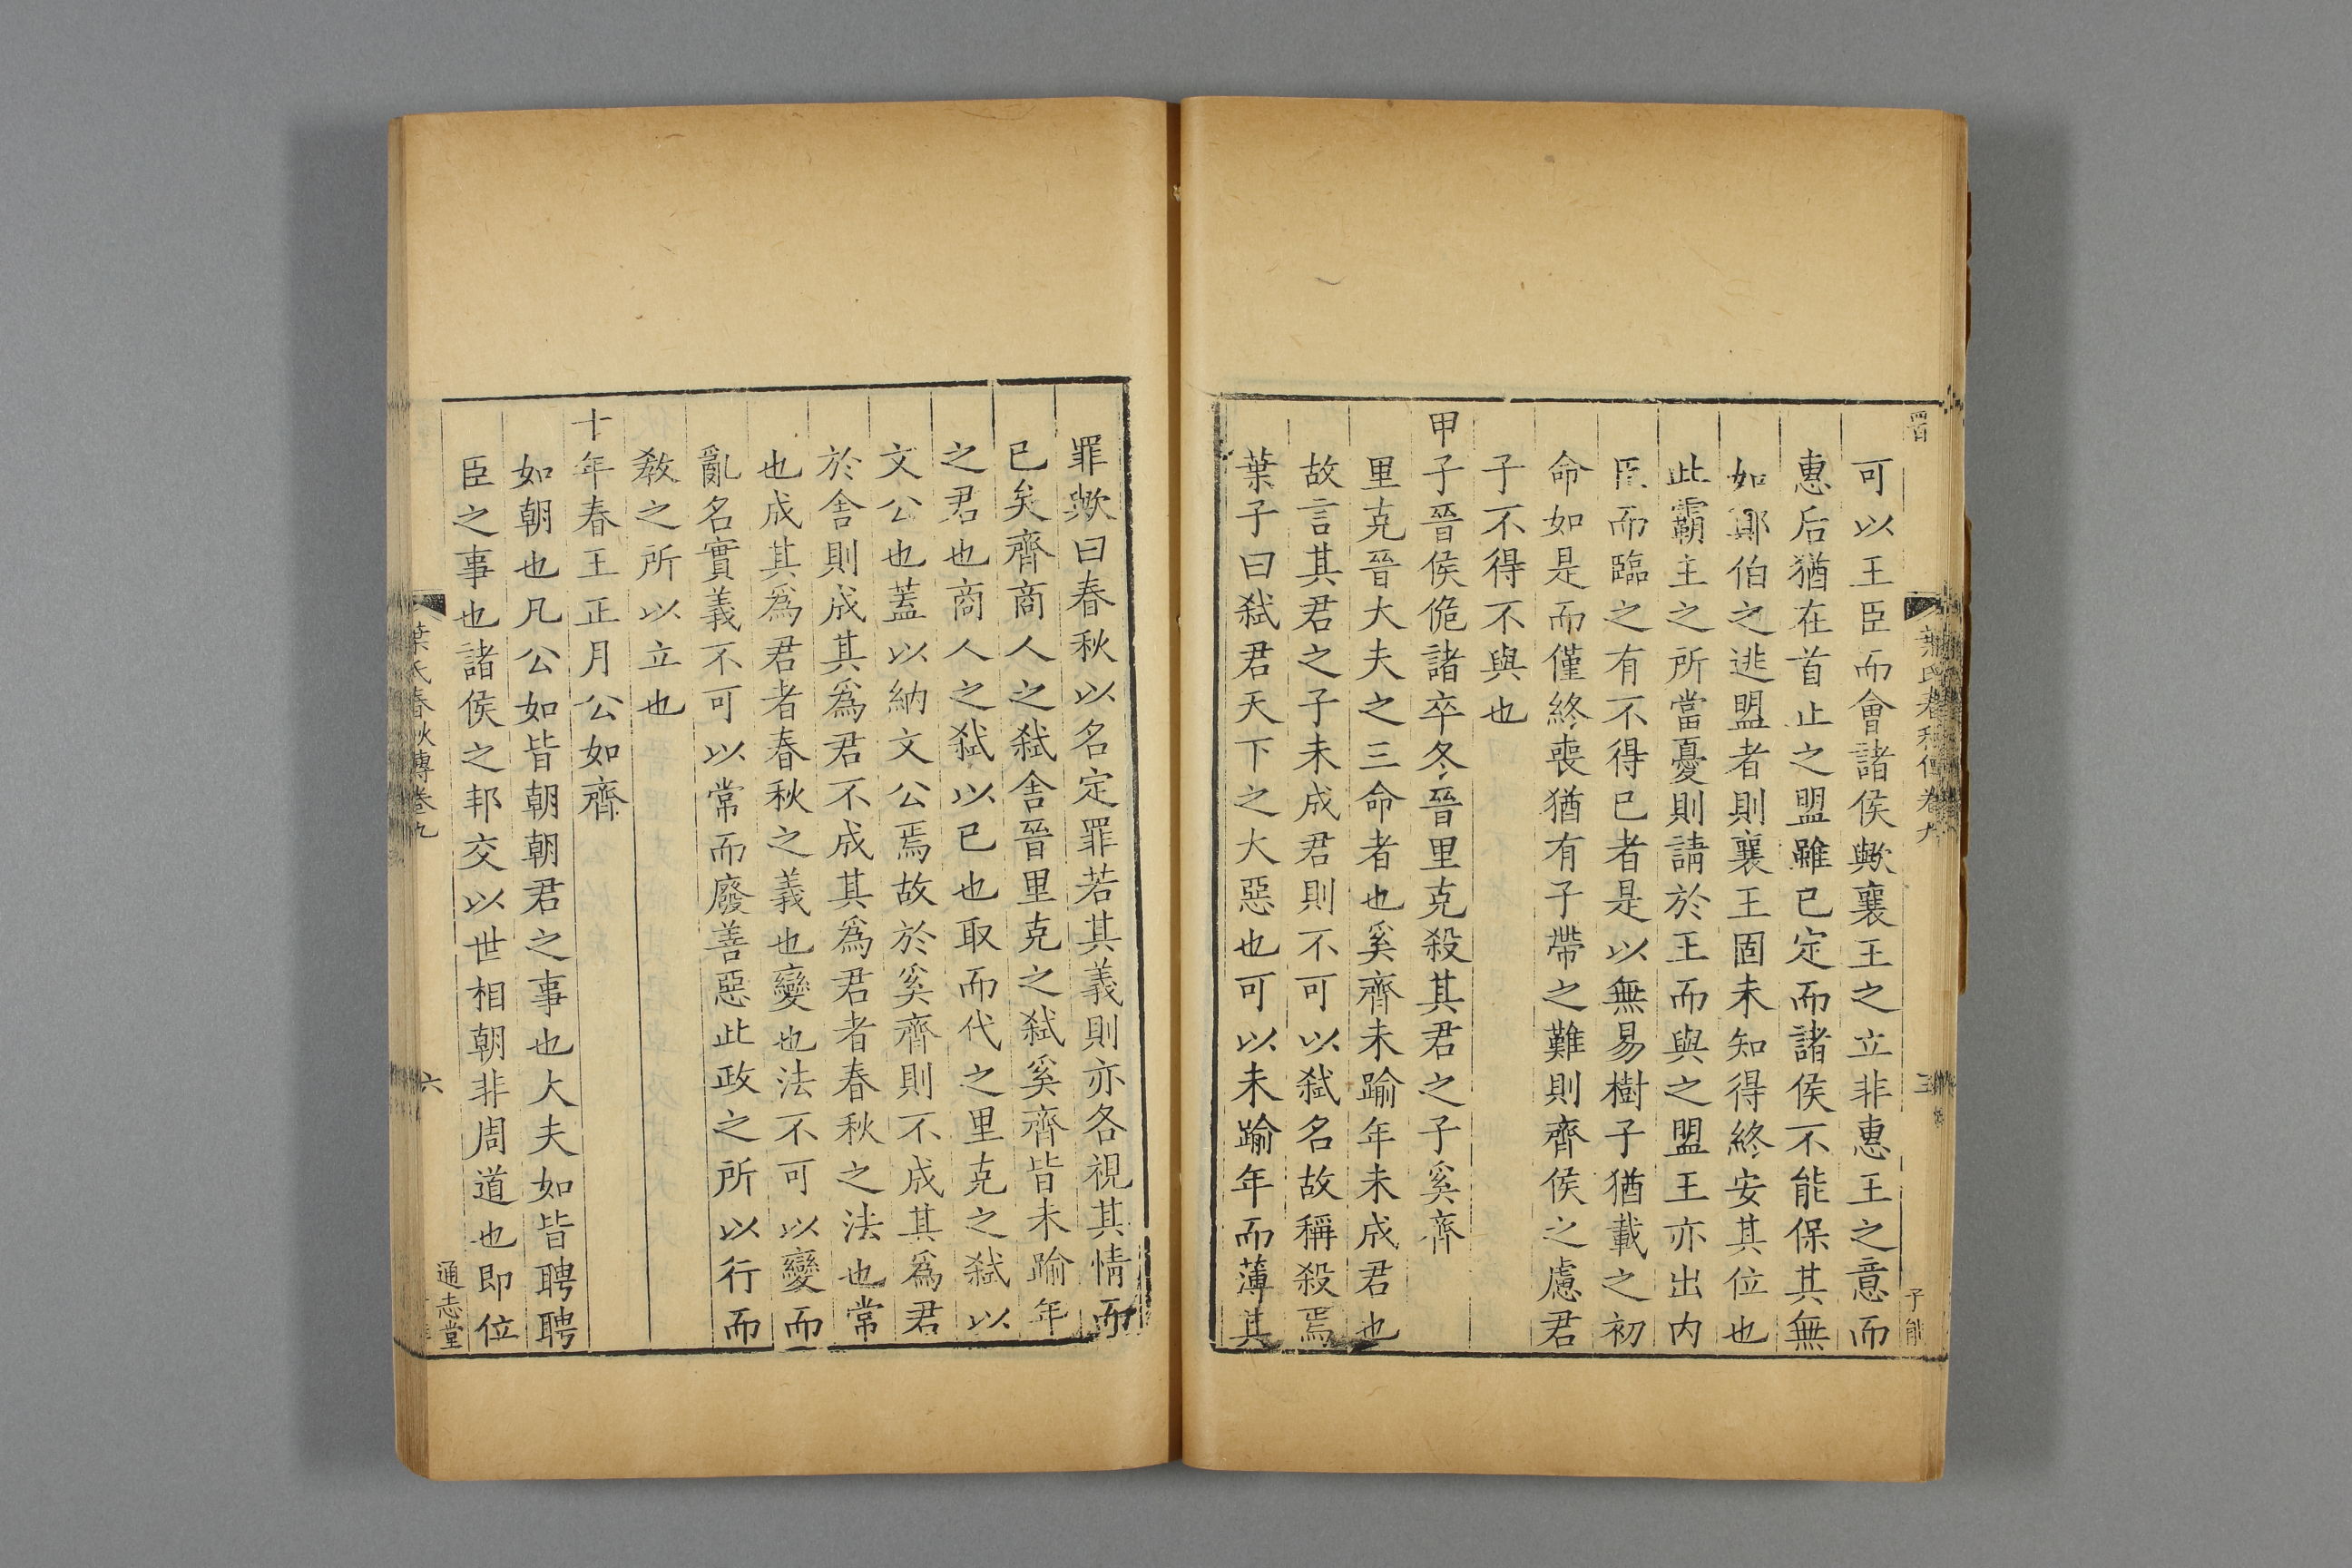 可以王臣而會諸侯歟襄王之立非惠王之意而
惠后猶在首止之盟雖已定而諸侯不能保其無
如鄭伯之逃盟者則襄王固未知得終安其位也
此霸主之所當憂則請於王而與之盟王亦出內
臣而臨之有不得已者是以無易樹子猶載之初
命如是而僅終喪猶有子帶之難則齊侯之慮君
子不得不與也
甲子晉侯佹諸卒冬晉里克殺其君之子奚齊
里克晉大夫之三命者也奚齊未踰年未成君也
故言其君之子未成君則不可以弑名故稱殺焉
葉子曰弑君天下之大惡也可以未踰年而薄其
罪歟曰春秋以名定罪若其義則亦各視其情而
已矣齊商人之弑舍晉里克之弑奚齊皆未踰年
之君也商人之弑以已也取而代之里克之弑以
文公也蓋以納文公焉故於奚齊則不成其爲君
於舍則成其爲君不成其爲君者春秋之法也常
也成其爲君者春秋之義也變也法不可以變而
亂名實義不可以常而廢善惡此政之所以行而
教之所以立也
十年春王正月公如齊
如朝也凡公如皆朝朝君之事也大夫如皆聘聘
臣之事也諸侯之邦交以世相朝非周道也即位
葉氏春秋傳卷九
六
通志堂